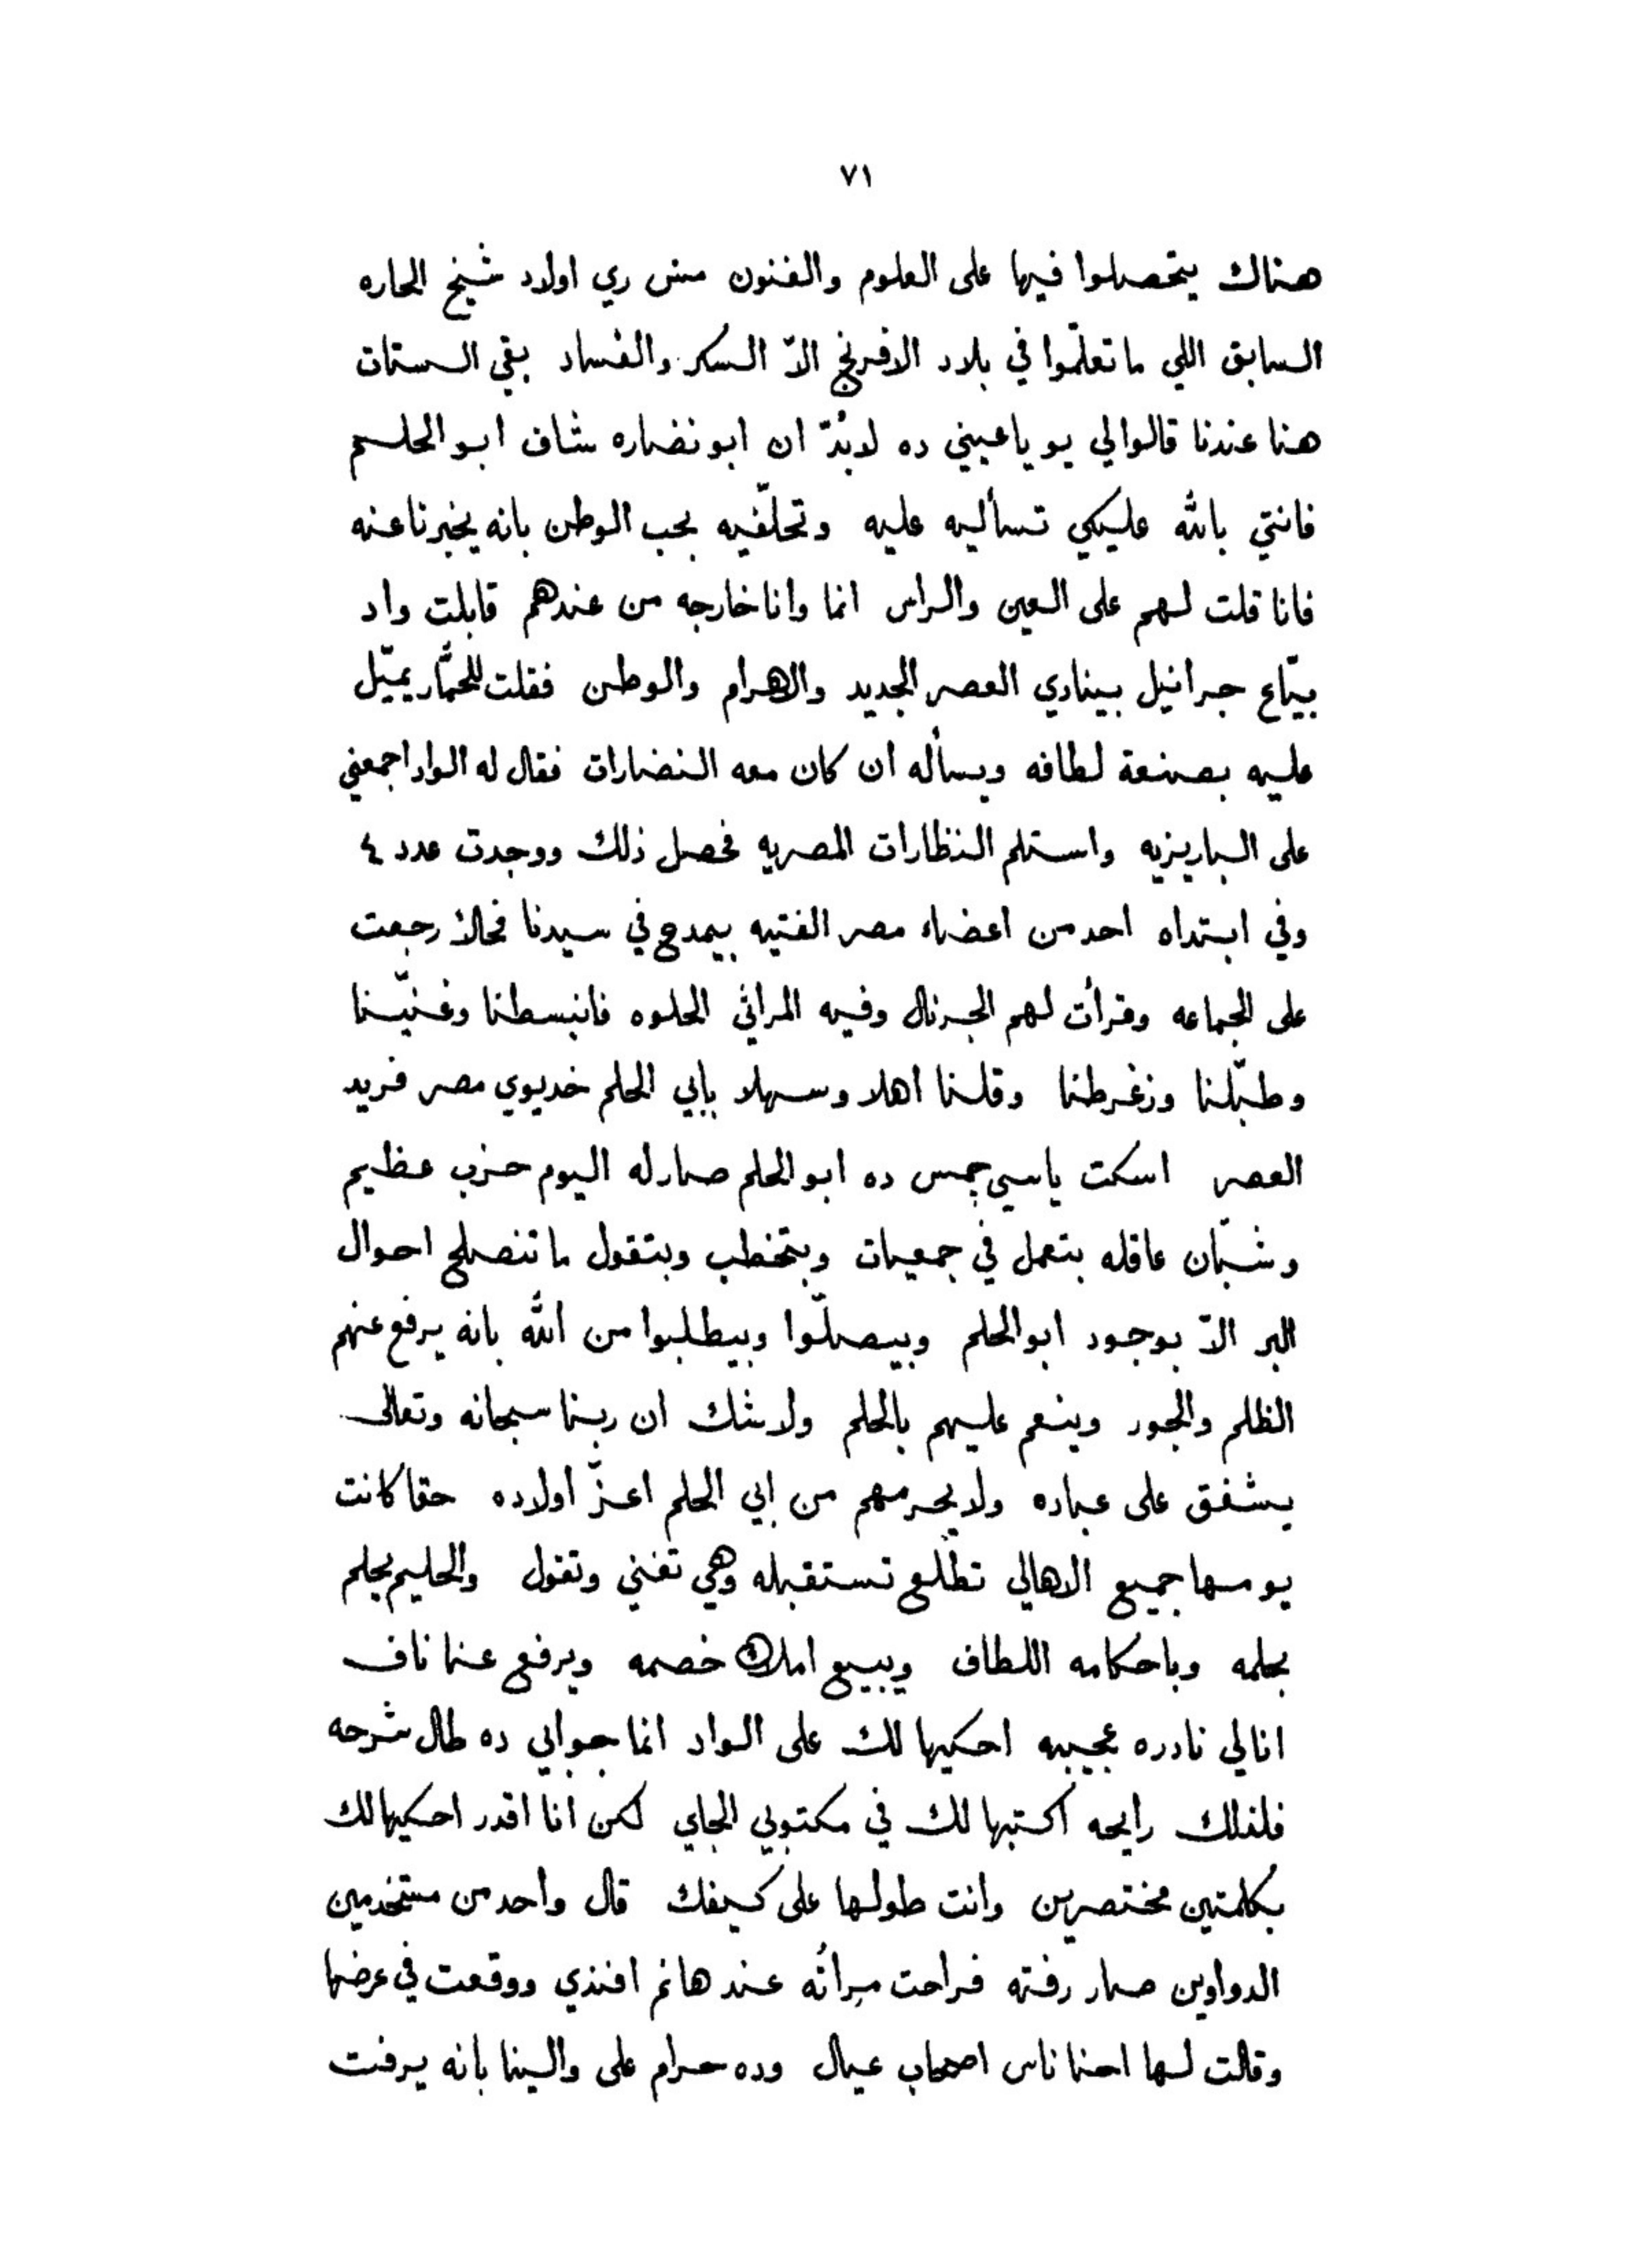 ٧١
هناك يتحصلوا فيها على العلوم والفنون مش زي اولاد شيخ الحاره
السابق اللي ما تعلّموا في بلاد الافرنج الاّ السكر والفساد بقى الستات
هنا عندنا قالوا لي يو يا عيني ده لابُدّ ان ابو نضاره شاف ابو الحلم
فانتي بالله عليكي تسأليه عليه وتحلّفيه بحب الوطن بانه يخبرنا عنه
فانا قلت لهم على العين والراس انما وانا خارجه من عندهم قابلت واد
بيّاع جرانيل بينادي العصر الجديد والاهرام والوطن فقلت للحمَّار يميّل
عليه بصنعة لطافه ويسأله ان كان معه النضارات فقال له الواد اجمعني
على الباريزيه واستلم النظارات المصريه فحصل ذلك ووجدت عدد ٤
وفي ابتداه احد من اعضاء مصر الفتيه بيمدح في سيدنا فحالاً رجعت
على الجماعه وقرأت لهم الجرنال وفيه المراثي الحلوه فانبسطنا وغنيّنا
وطبّلنا وزغرطنا وقلنا اهلا وسهلا بابي الحلم خديوي مصر فريد
العصر اسكت ياسي جمس ده ابو الحلم صار له اليوم حزب عظيم
وشبّان عاقله بتعمل في جمعيات وبتخطب وبتقول ما تنصلح احوال
البر الاّ بوجود ابو الحلم وبيصلّوا وبيطلبوا من الله بانه يرفع عنهم
الظلم والجور وينعم عليهم بالحلم ولا شك ان ربنا سبحانه وتعالى
يشفق على عباده ولا يحرمهم من ابي الحلم اعزّ اولاده حقا كانت
يومها جميع الاهالي تطلع تستقبله وهي تغني وتقول والحليم يحلم
بحلمه وباحكامه اللطاف ويبيع املاك خصمه ويرفع عنا ناف
انا لي نادره عجيبه احكيها لك على الواد انما جوابي ده طال شرحه
فلذلك رايحه اكتبها لك في مكتوبي الجاي لكن أنا اقدر احكيها لك
بكلمتين مختصرين وانت طولها على كيفك قال واحد من مستخدمين
الدواوين صار رفته فراحت مرأته عند هانم افندي ووقعت في عرضها
وقالت لها احنا ناس اصحاب عيال وده حرام على والينا بانه يرفت